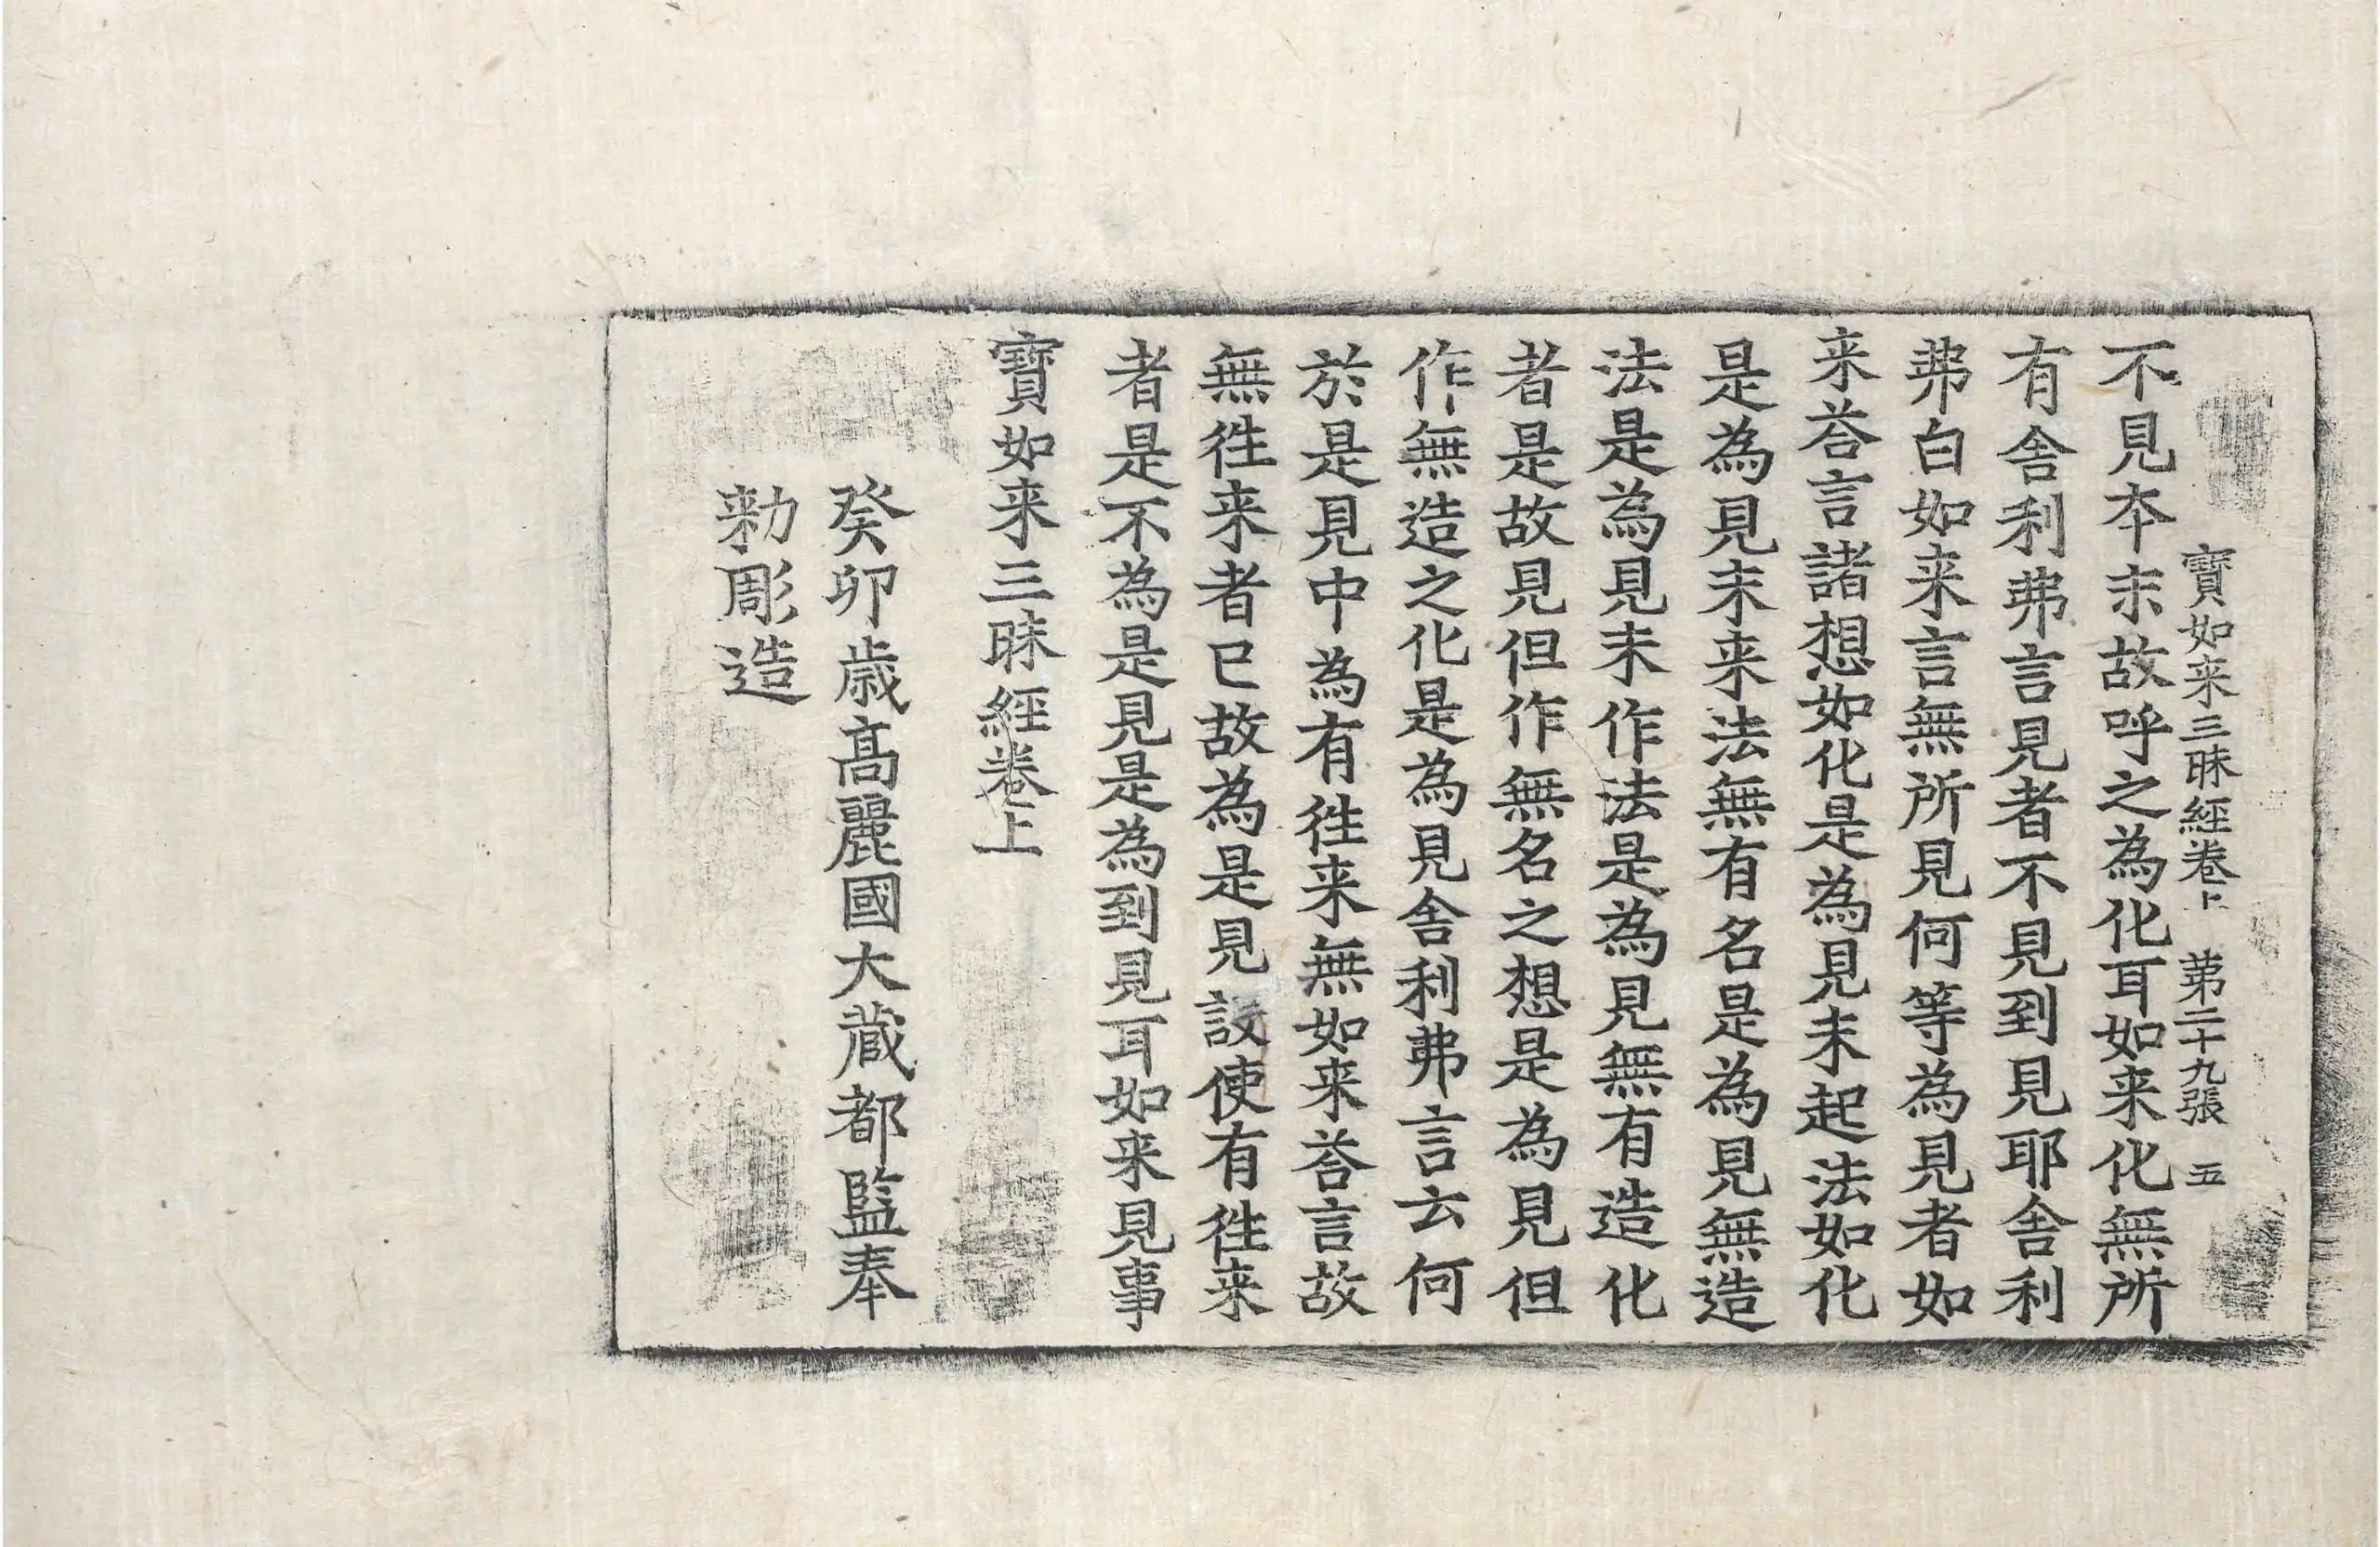 寶如来三昧經卷上 苐二十九張 五
不見夲末故呼之為化耳如来化無所
有舍利弗言見者不見到見耶舍利
弗白如来言無所見何等為見者如
来荅言諸想如化是為見未起法如化
是為見未来法無有名是為見無造
法是為見未作法是為見無有造化
者是故見但作無名之想是為見但
作無造之化是為見舍利弗言云何
於是見中為有徃来無如来荅言故
無徃来者已故為是見設使有徃来
者是不為是見是為到見耳如来見事
寶如来三昧經卷上
癸卯歳髙麗國大藏都監奉
勑彫造